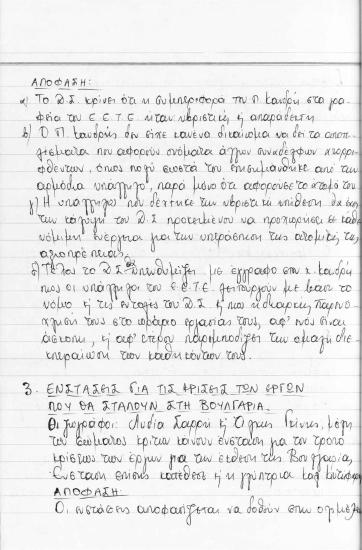 ΑΠΟΦΑΣΗ:
α) Το Δ.Σ. κρίνει ότι η συμπεριφορά του Π. Κανδρή στα γρα-
φεία του Ε.Ε.Τ.Ε. ήταν υβριστική η απαράδεκτη
β) Ο Π. Κανδρής δεν είχε κανένα δικαίωμα να δει τα αποτε-
λέσματα που αφορούν ονόματα άλλων συναδέλφων
φθέντων, όπως πολύ σωστά του επισημάνθηκε από την
αρμόδια υπάλληλο, παρά μόνο ότι αφορούσε το άτομό του.
γ) Η υπάλληλος που δέχτηκε την υβριστική επίθεση θα έχει
την κάλυψη του Δ.Σ προκειμένου να προχωρήσει σε κάθε
νόμιμη ενέργεια για την υπεράσπιση της ατομικής της
αξιοπρέπειας.
δ) Τέλος το Δ.Σ. υπενθυμίζει με έγγραφο στον κ. Κανδρή
πως οι υπάλληλοι του Ε.Ε.Τ.Ε. λειτουργούν με βάση το
νόμο ή τις εντολές του Δ.Σ ή πως η διαρκής παρενό-
χλησή τους στο ωράριο εργασίας τους, αφ' ενός είναι
άσκοπη, ή αφ' ετέρου παρεμποδίζει την ομαλή διε-
κπεραίωση των καθηκόντων τους.
3. ΕΝΣΤΑΣΕΙΣ ΓΙΑ ΤΙΣ ΚΡΙΣΕΙΣ ΤΩΝ ΕΡΓΩΝ
ΠΟΥ ΘΑ ΣΤΑΛΟΥΝ ΣΤΗ ΒΟΥΛΓΑΡΙΑ.
Οι ζωγράφοι: Λυδία Σαρρή ή Όλγας, μέλη
του σώματος κριτών κάνουν ένσταση για τον τρόπο
κρίσεως των έργων για την έκθεση της Βουλγαρίας.
Ένσταση επίσης κατέθεσε ή η γλύπτρια
ΑΠΟΦΑΣΗ:
Οι ενστάσεις αποφασίζεται να δοθούν στην